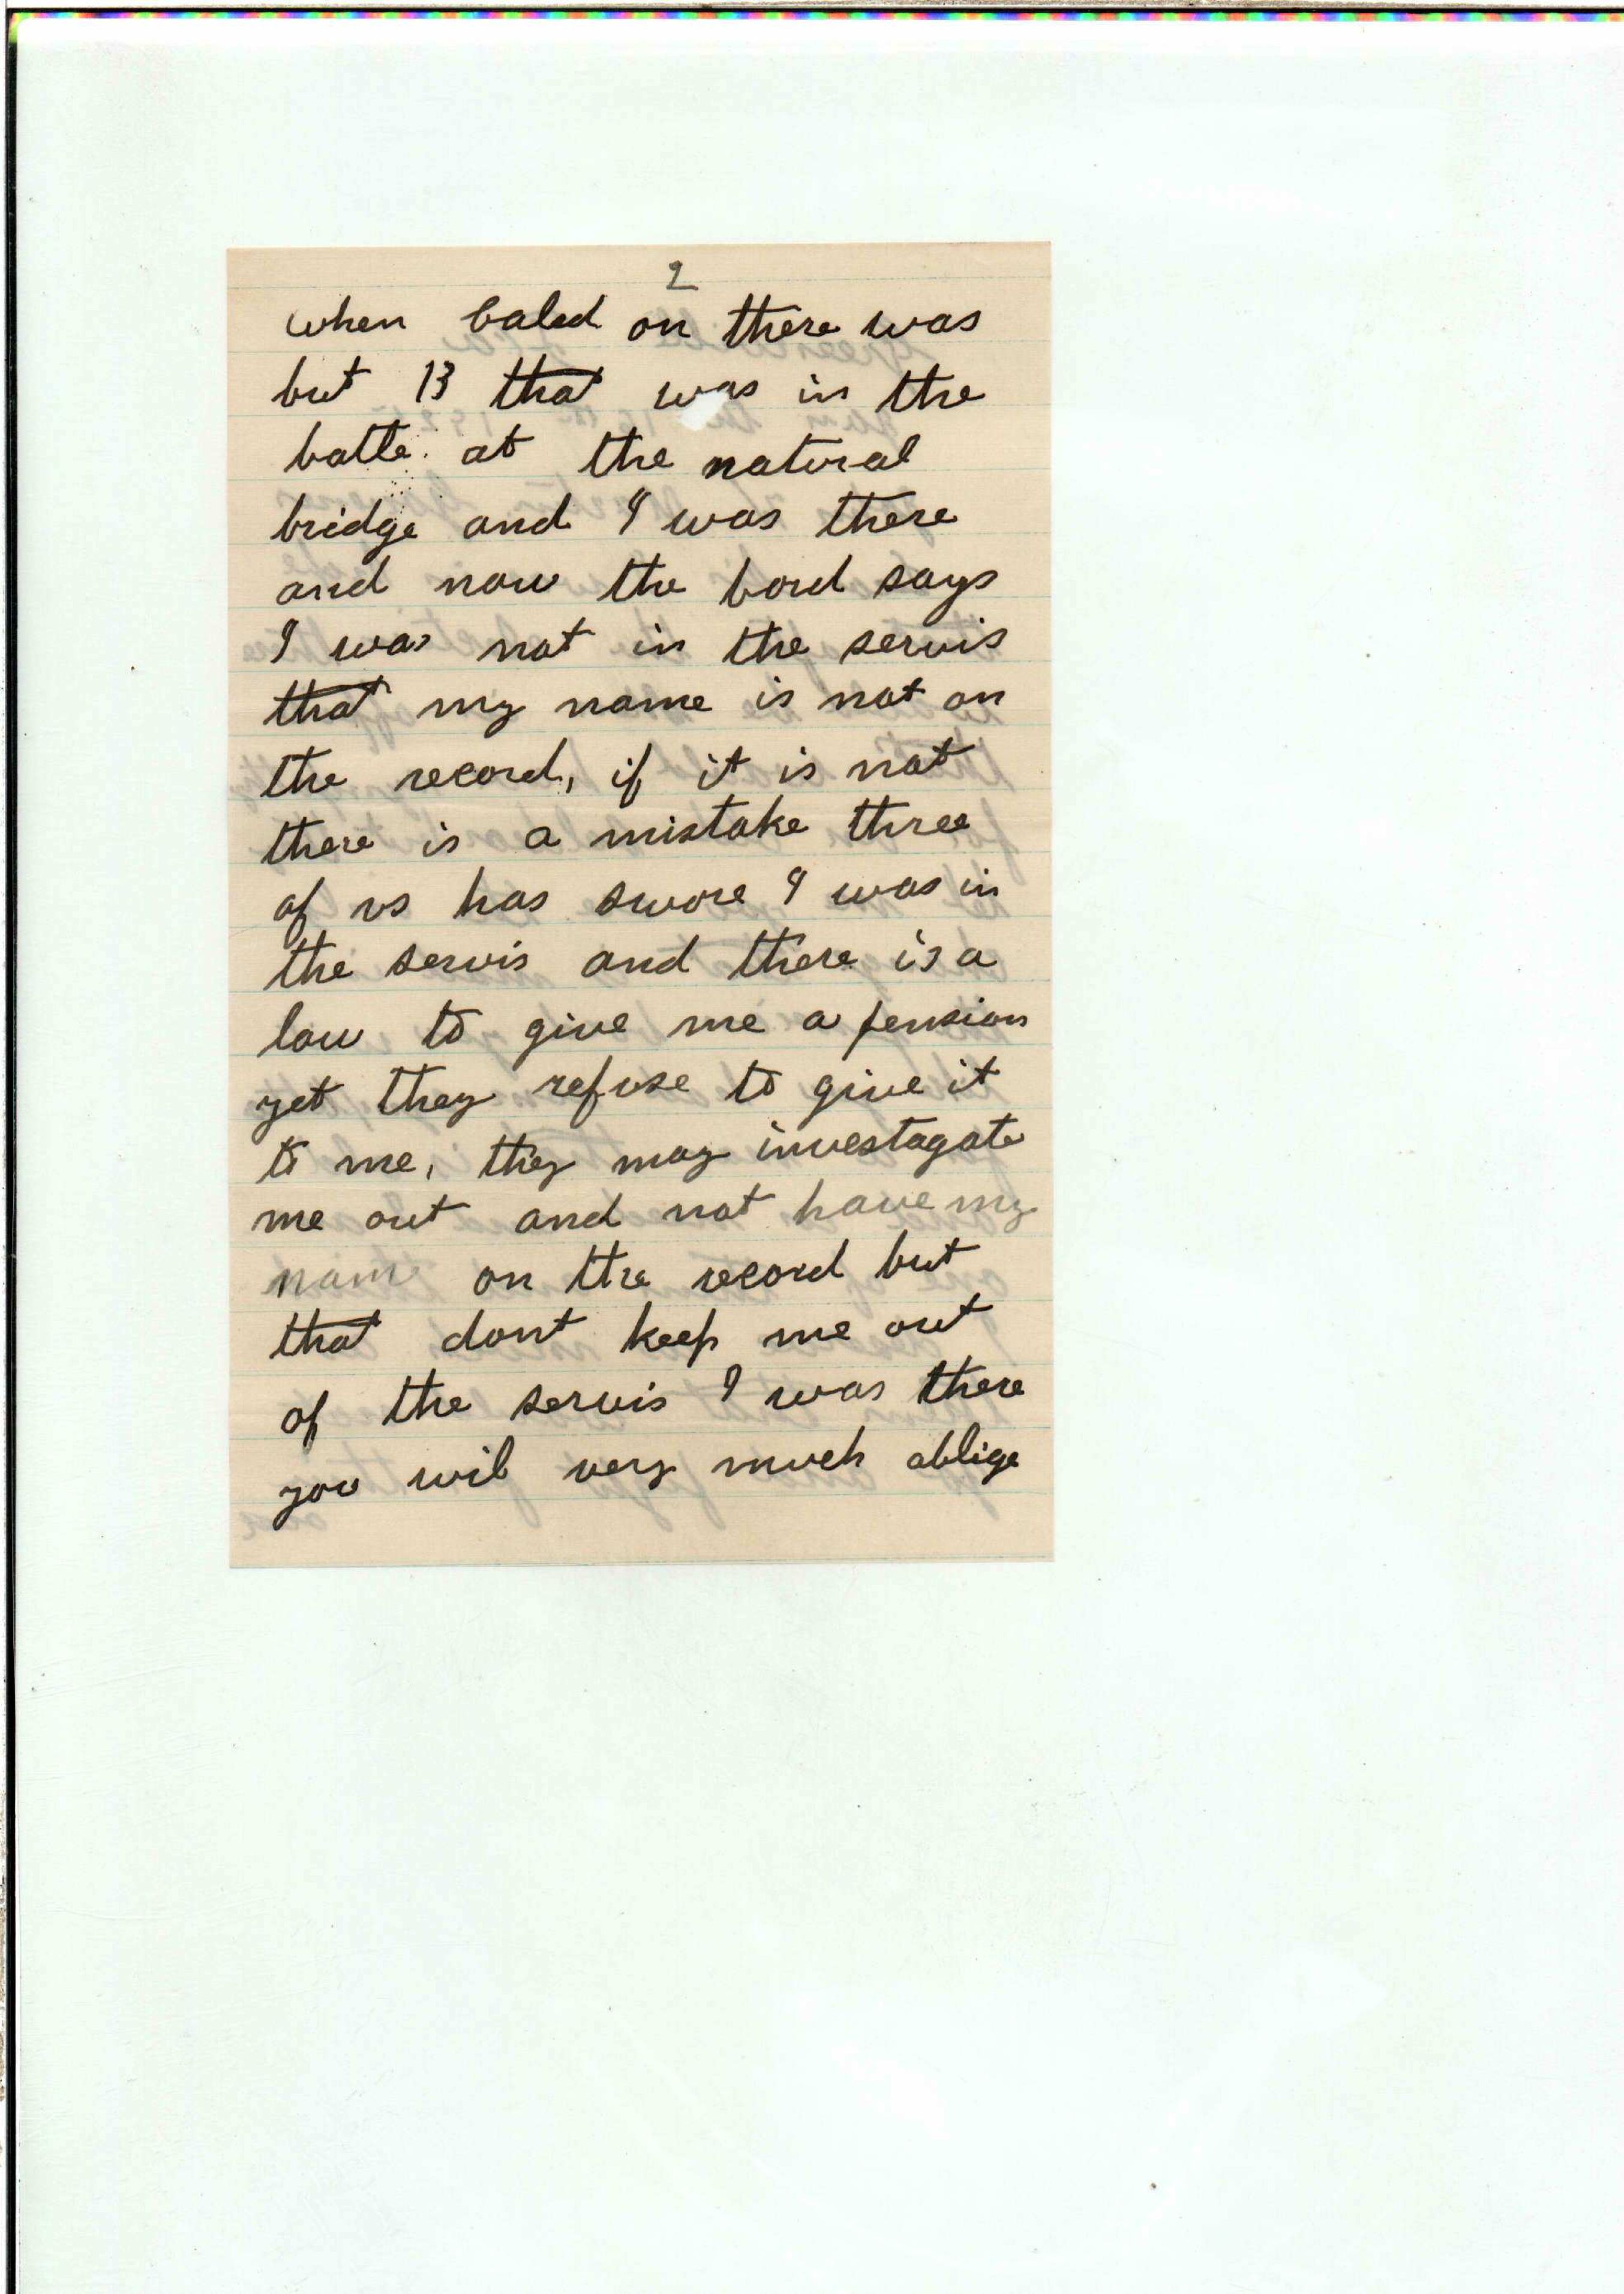 2
when caled on there was
but 13 that was in the
batle at the natural
bridge and I was there
and now the bord says
I was not in the servis
that my name is not on
the record, if it is not
there is a mistake three
of us has swore I was in
the servis and there is a
law to give me a pension
yet they refuse to give it
to me, they may investagate
me out and not have my
name on the record but
that dont keep me out
of the servis I was there
you wil very much oblige